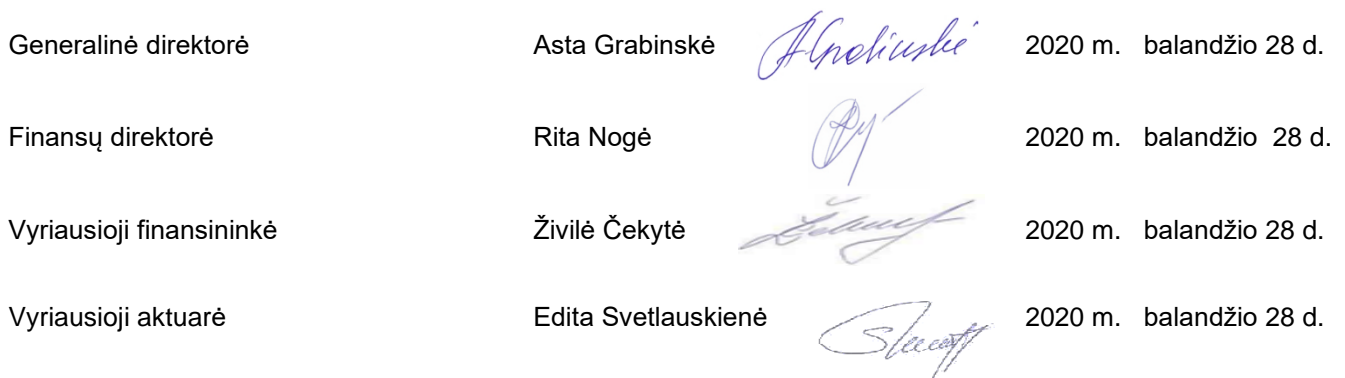 Generalinė direktorė Asta Grabinskė 2020 m. balandžio 28 d.
Finansų direktorė Rita Nogė 2020 m. balandžio 28 d.
Vyriausioji finansininkė Živilė Čekytė 2020 m. balandžio 28 d.
Vyriausioji aktuarė Edita Svetlauskienė 2020 m. balandžio 28 d.